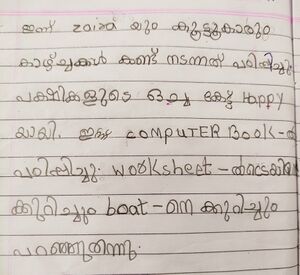 ഇന്ന് zaira യും കൂട്ടുകാരും
കാഴ്ച്ചകൾ കണ്ട് നടന്നത് പഠിപ്പിച്ചു
പക്ഷികളുടെ ഒച്ച കേട്ട് Happy
യായി. ഇന്ന് COMPUTER BOOK-ൽ
പഠിപ്പിച്ചു. worksheet -ൽ
ക്കുറിച്ചും boat-നെ ക്കുറിച്ചും
പറഞ്ഞുതന്നു.